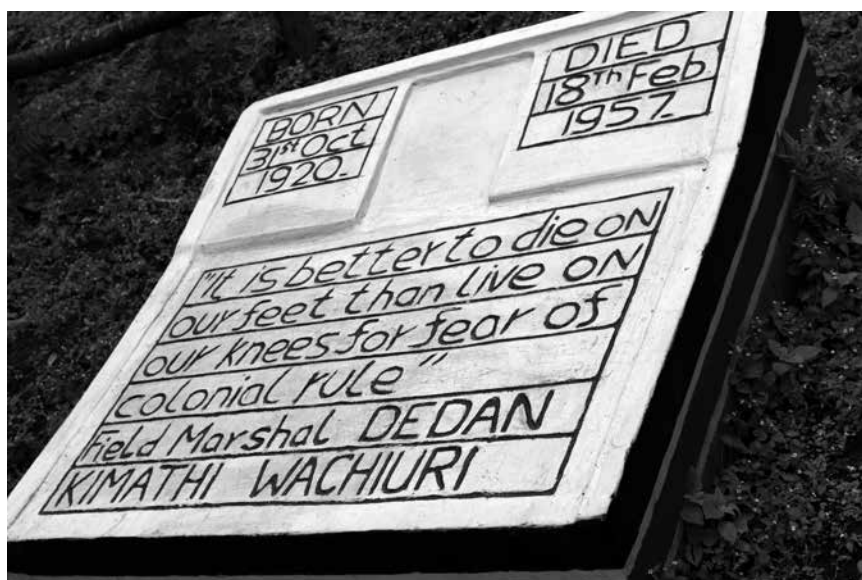 BORN
31st Oct
1920-
DIED
18Th Feb
1957-
"It is better to die ON
our feet than live ON
our knees for fear of
colonial rule"
Field Marshal DEDAN
KIMATHI WACHIURI